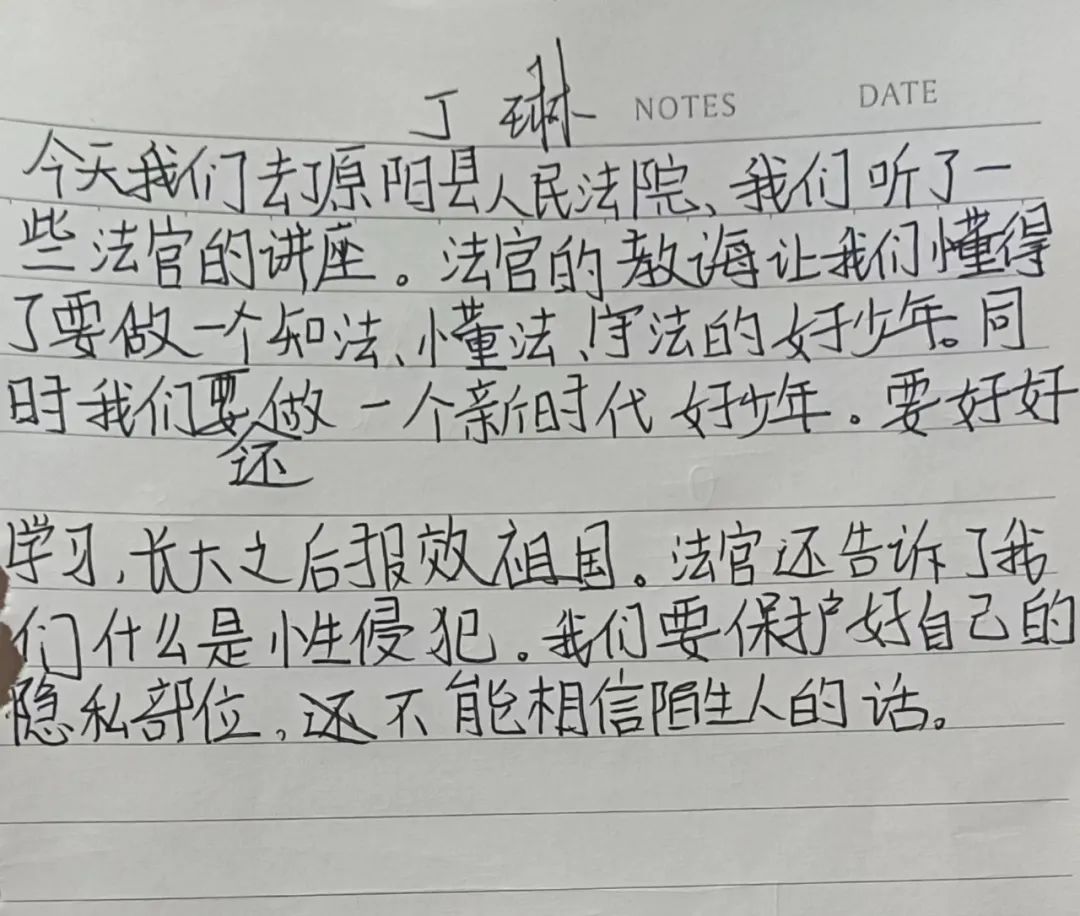 丁琳 NOTES DATE
今天我们去了原阳县人民法院、我们听了一
些法官的讲座。法官的教诲让我们懂得
了要做一个知法、懂法、守法的好少年。同
时我们还要做一个新时代好少年。要好好
学习,长大之后报效祖国。法官还告诉了我
们什么是性侵犯。我们要保护好自己的
隐私部位,还不能相信陌生人的话。